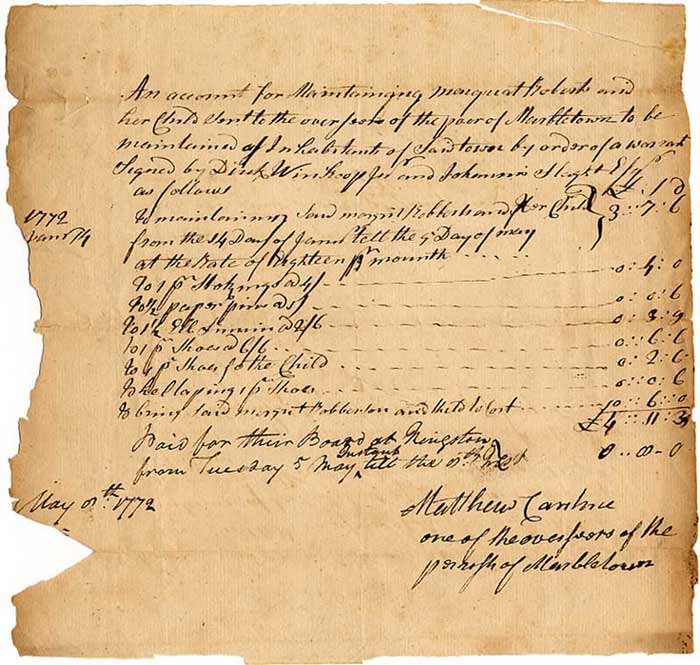 An account for Maintainging margreat Roberts and
her Child Sent to the overseers of the poor of Marbletown to be
maintained of Inhabitents of Said town by order of a warrant
Signed by Dirck Winkoop Jur and Johannis Slaght Esqr
as follows £ S D
1772 To maintaining Said margrit Robberts and Her Child 3::7::6
Janr 14 from the 14 Day of Jannr tell the 5 Day of may
at the Rate of Eighteen pr mounth
To 1 pr Stokings a 4/ 0::4::0
To ½ paper pins a 1/ 0::0::6
To 1½ Ell Linnin a 2/6 0::3::9
to 1 pr Shoes a 6/6 0::6::6
to 1 pr Shoes for the Child 0::2::6
to 1 pr Shoes 0::0::6
to bring Said margrit Robberson and to Cort 0::6::0
£4::11::3
Paid for their Board at Kingston 0::00::0
from Tuesday 5 May Instant tell the 8th
May 8th: 1772
Matthew Cantine
one of the overseers of the
perrish of Marbletown